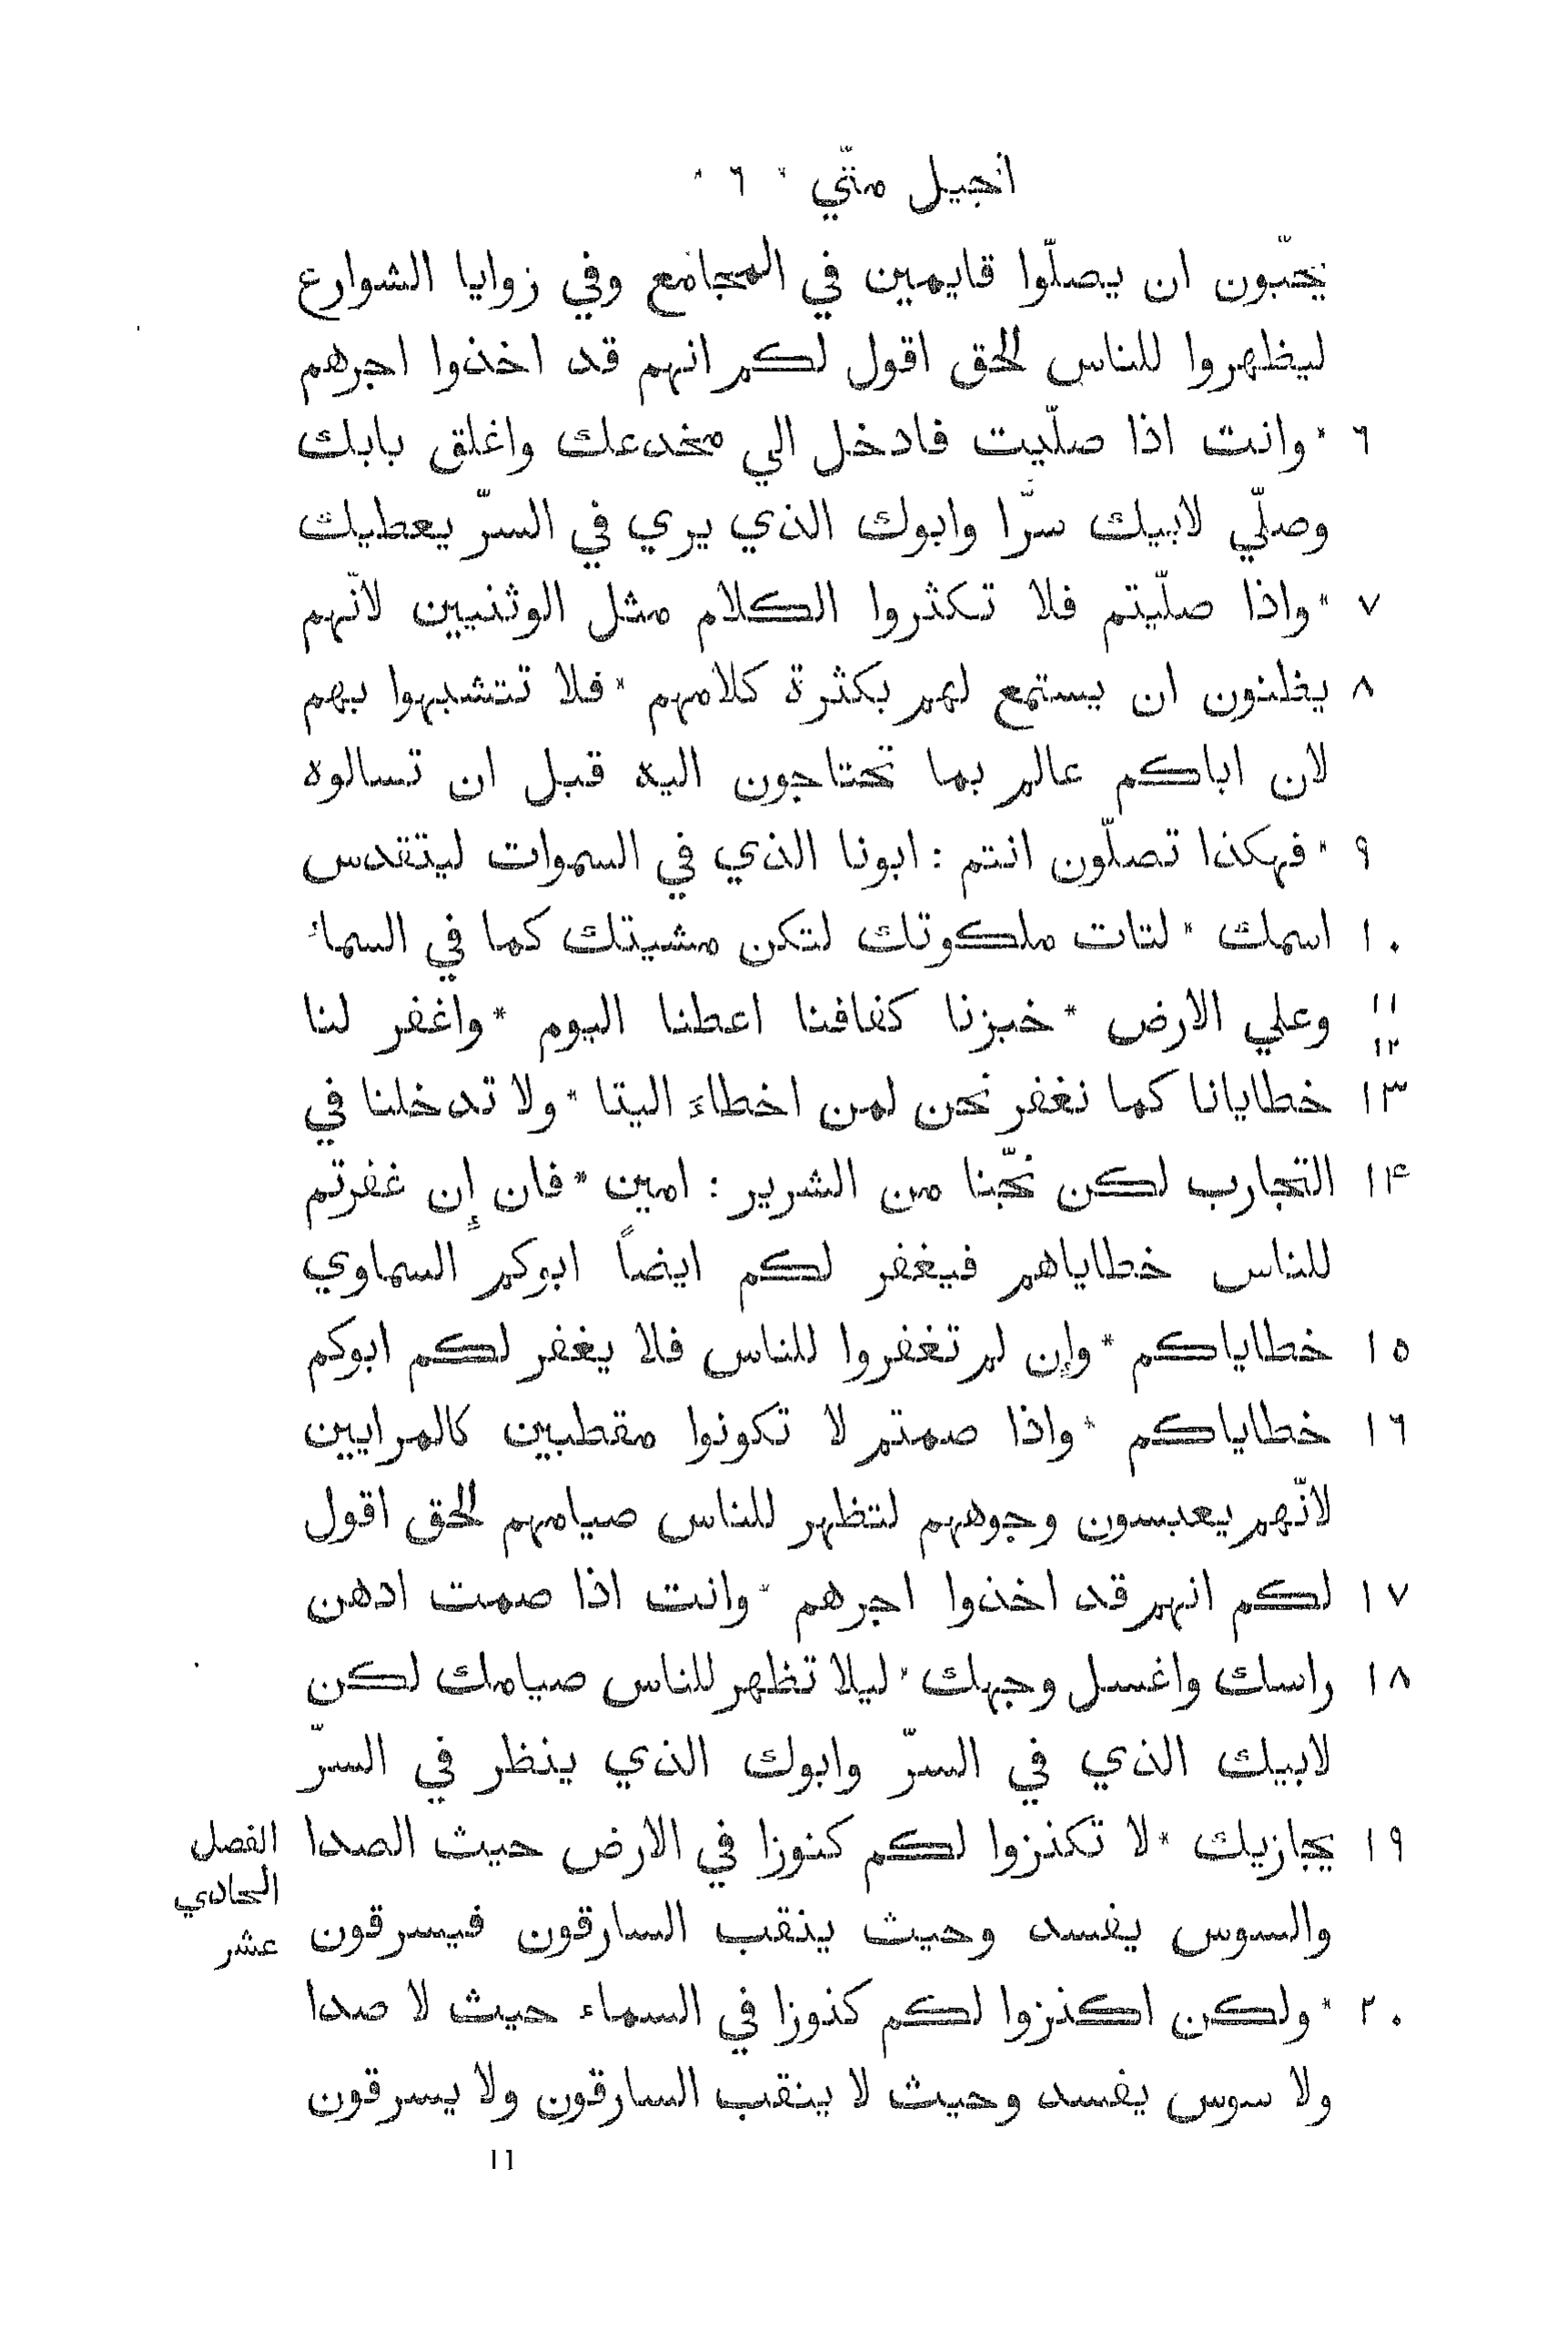 انجيل متّي * ٦ *
يحبّون ان يصلّوا قايمين في المجامع وفي زوايا الشوارع
ليظهروا للناس لحق اقول لكم انهم قد اخذوا اجرهم
٦ * وانت اذا صلّيت فادخل الي مخدعك واغلق بابك
وصلّي لابيك سرّا وابوك الذي يري في السرّ يعطيك
٧ * واذا صلّيتم فلا تكثروا الكلام مثل الوثنيين لانّهم
٨ يظنون ان يستمع لهم بكثرة كلامهم * فلا تتشبهوا بهم
لان اباكم عالم بما تحتاجون اليه قبل ان تسالوه
٩ * فهكذا تصلّون انتم : ابونا الذي في السموات ليتقدس
١٠ اسمك * لتات ملكوتك لتكن مشيتك كما في السماء
١١ وعلي الارض * خبزنا كفافنا اعطنا اليوم * واغفر لنا
١٢
١٣ خطايانا كما نغفر نحن لمن اخطاء الينا * ولا تدخلنا في
١۴ التجارب لكن نجّنا من الشرير : امين * فان إن غفرتم
للناس خطاياهم فيغفر لكم ايضاً ابوكم السماوي
١٥ خطاياكم * وإن لم تغفروا للناس فلا يغفر لكم ابوكم
١٦ خطاياكم * واذا صمتم لا تكونوا مقطبين كالمرايين
لانّهم يعبسون وجوههم لتظهر للناس صيامهم لحق اقول
١٧ لكم انهم قد اخذوا اجرهم * وانت اذا صمت ادهن
١٨ راسك واغسل وجهك * ليلا تظهر للناس صيامك لكن
لابيك الذي في السرّ وابوك الذي ينظر في السرّ
١٩ يجازيك * لا تكنزوا لكم كنوزا في الارض حيث الصدا
الفصل
الحادي
عشر
والسوس يفسد وحيث ينقب السارقون فيسرقون
٢٠ * ولكن اكنزوا لكم كنوزا في السماء حيث لا صدا
ولا سوس يفسد وحيث لا ينقب السارقون ولا يسرقون
11